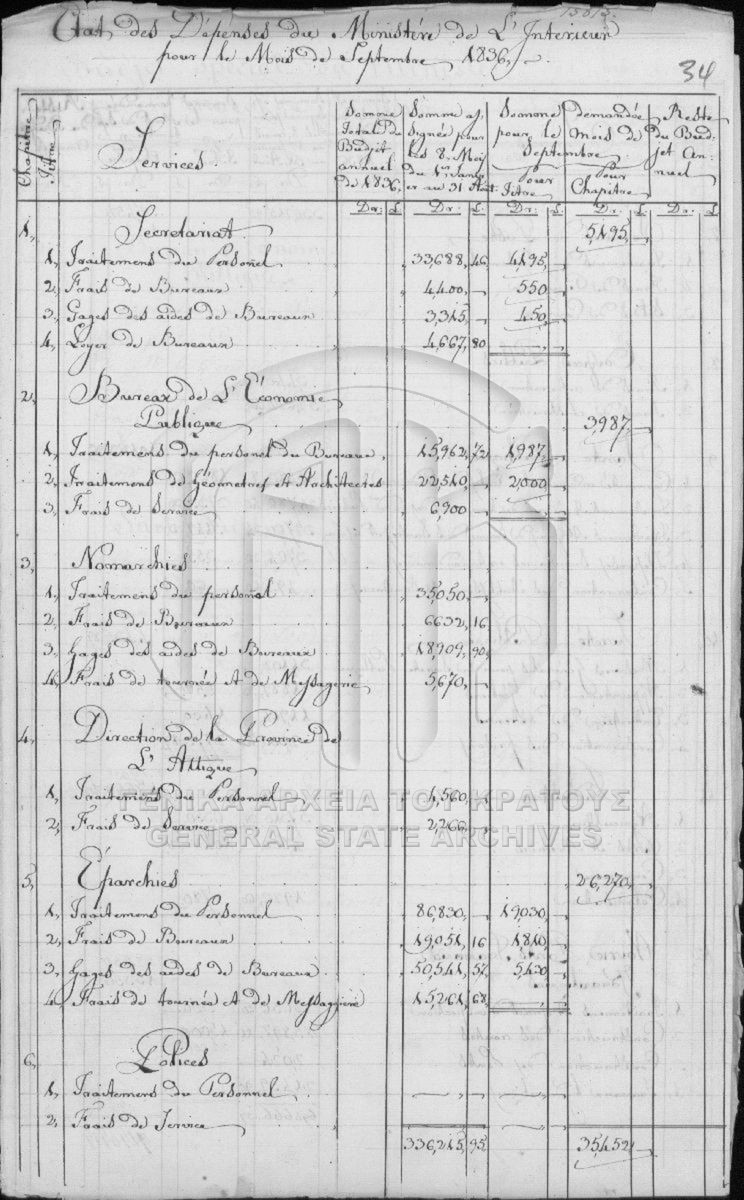 Etat des Dépenses du Ministére de L'Interieur
pour le Mois de Septembre 1836,
34
Chapitre
Titre
Services
Somme Total du Budjet annuel de 1836,
Somme assignée pour les 8. Mois du 1er Janvier au 31 Août
Somme demandée pour le mois de Septembre
Pour Titre
Pour Chapitre
Reste du Budjet Annuel
Dr: L. Dr: L. Dr: L. Dr: L. Dr: L.
1, Secretariat 5,195, —
1, Traitemens du Personel 33,688, 46 4,195, —
2, Frais de Bureaux 4,400, — 550 —
3, Gages des aides de Bureaux 3,315, — 450, —
4, Loyer de Bureaux 4,667, 80 —
2, Bureax de L'Économie
Publique 3,987, —
1, Traitemens du personel du Bureaux, 15,962, 72 1,987, —
2, Traitemens de Géometres et Architectes 22,510, — 2,000 —
3, Frais de Service 6,900 —
3, Nomarchies
1, Traitemens du personel 35,050, —
2, Frais de Bureaux 6632, 16
3, Gages des aides de Bureaux 18,909, 90,
4, Frais de tournée et de Messagerie 5,670, —
4, Direction de la Province de
L'Attique
1, Traitemens du Personnel 4,560, —
2, Frais de Service 2,266, —
ΓΕΝΙΚΑ ΑΡΧΕΙΑ ΤΟΥ ΚΡΑΤΟΥΣ
GENERAL STATE ARCHIVES
5, Éparchies 26,270, —
1, Traitemens du Personnel 86,830, — 19,030, —
2, Frais de Bureaux 19,051, 16 1,810, —
3, Gages des aides de Bureaux 50,541, 57, 5,430 —
4, Frais de tournée et de Messagerie 15,261, 68, —
6, Polices
1, Traitemens du Personnel — — — —
2, Frais de Service — — — —
336,215, 95, 35,452, —